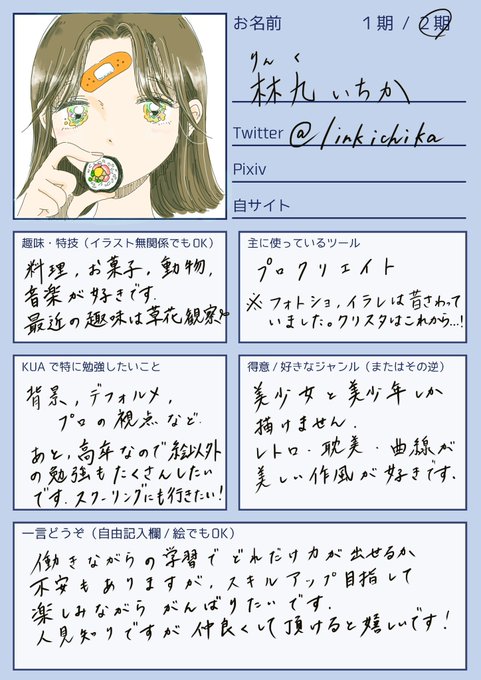 お名前 1期 / 2期
りんく
林九 いちか
Twitter @linkichika
Pixiv
自サイト
趣味・特技（イラスト無関係でもOK）
料理, お菓子, 動物,
音楽が好きです.
最近の趣味は草花観察
主に使っているツール
プロクリエイト
※ フォトショ, イラレは昔さわって
いました。クリスタはこれから…!
KUAで特に勉強したいこと
背景, デフォルメ,
プロの視点など.
あと, 高卒なので絵以外
の勉強もたくさんしたい
です. スクーリングにも行きたい!
得意/好きなジャンル（またはその逆）
美少女と美少年しか
描けません.
レトロ・耽美・曲線が
美しい作風が好きです.
一言どうぞ（自由記入欄/絵でもOK）
働きながらの学習でどれだけ力が出せるか
不安もありますが, スキルアップ目指して
楽しみながら がんばりたいです.
人見知りですが仲良くして頂けると嬉しいです!